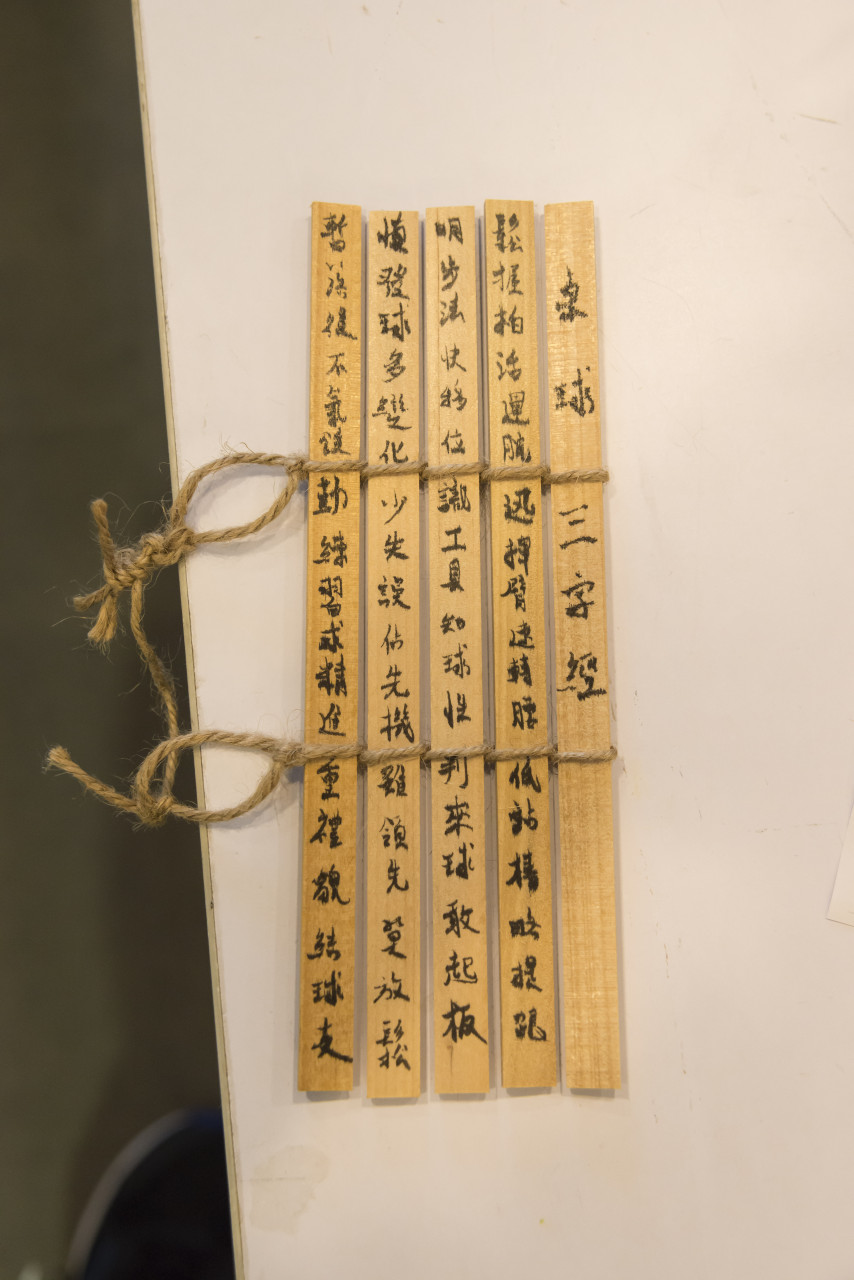 桌球三字經
鬆握拍活運腕迅揮臂速轉腰低站樁略提跟
明步法快移位識工具知球性判來球敢起板
慎發球多變化少失誤佔先機雖領先莫放鬆
暫落後不氣餒勤練習球精進重禮貌結球友